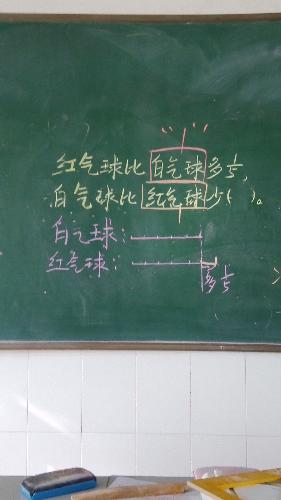 “1”
红气球比白气球多1/5,
白气球比红气球少( )。
白气球:
红气球:
多1/5